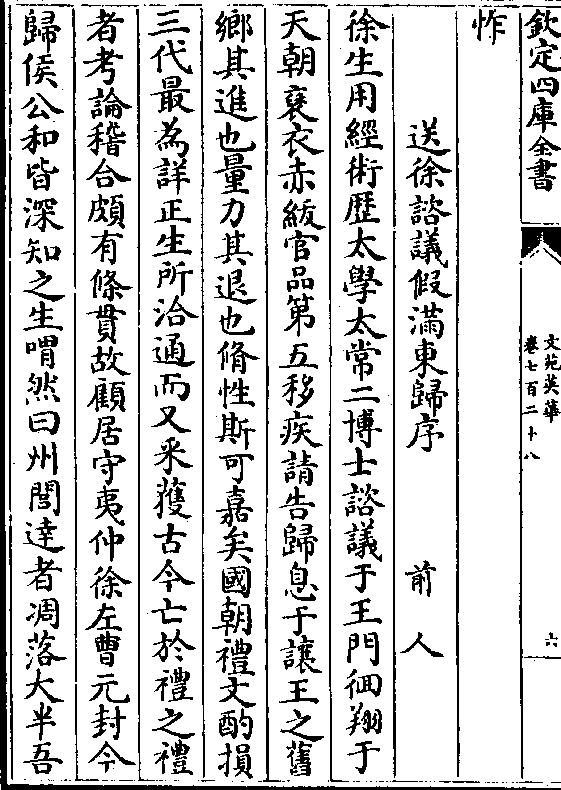 欽定四庫全書
文苑英華
卷七百二十八
六
怍
送徐諮議假滿東歸序 前人
徐生用經術歷太學太常二博士諮議于王門徊翔于
天朝褎衣赤紱官品第五移疾請告歸息于讓王之舊
鄉其進也量力其退也脩性斯可嘉矣國朝禮文酌損
三代最為詳正生所洽通而又采獲古今亡於禮之禮
者考論稽合頗有條貫故顧居守夷仲徐左曹元封今
歸侯公和皆深知之生喟然曰州閭達者凋落大半吾